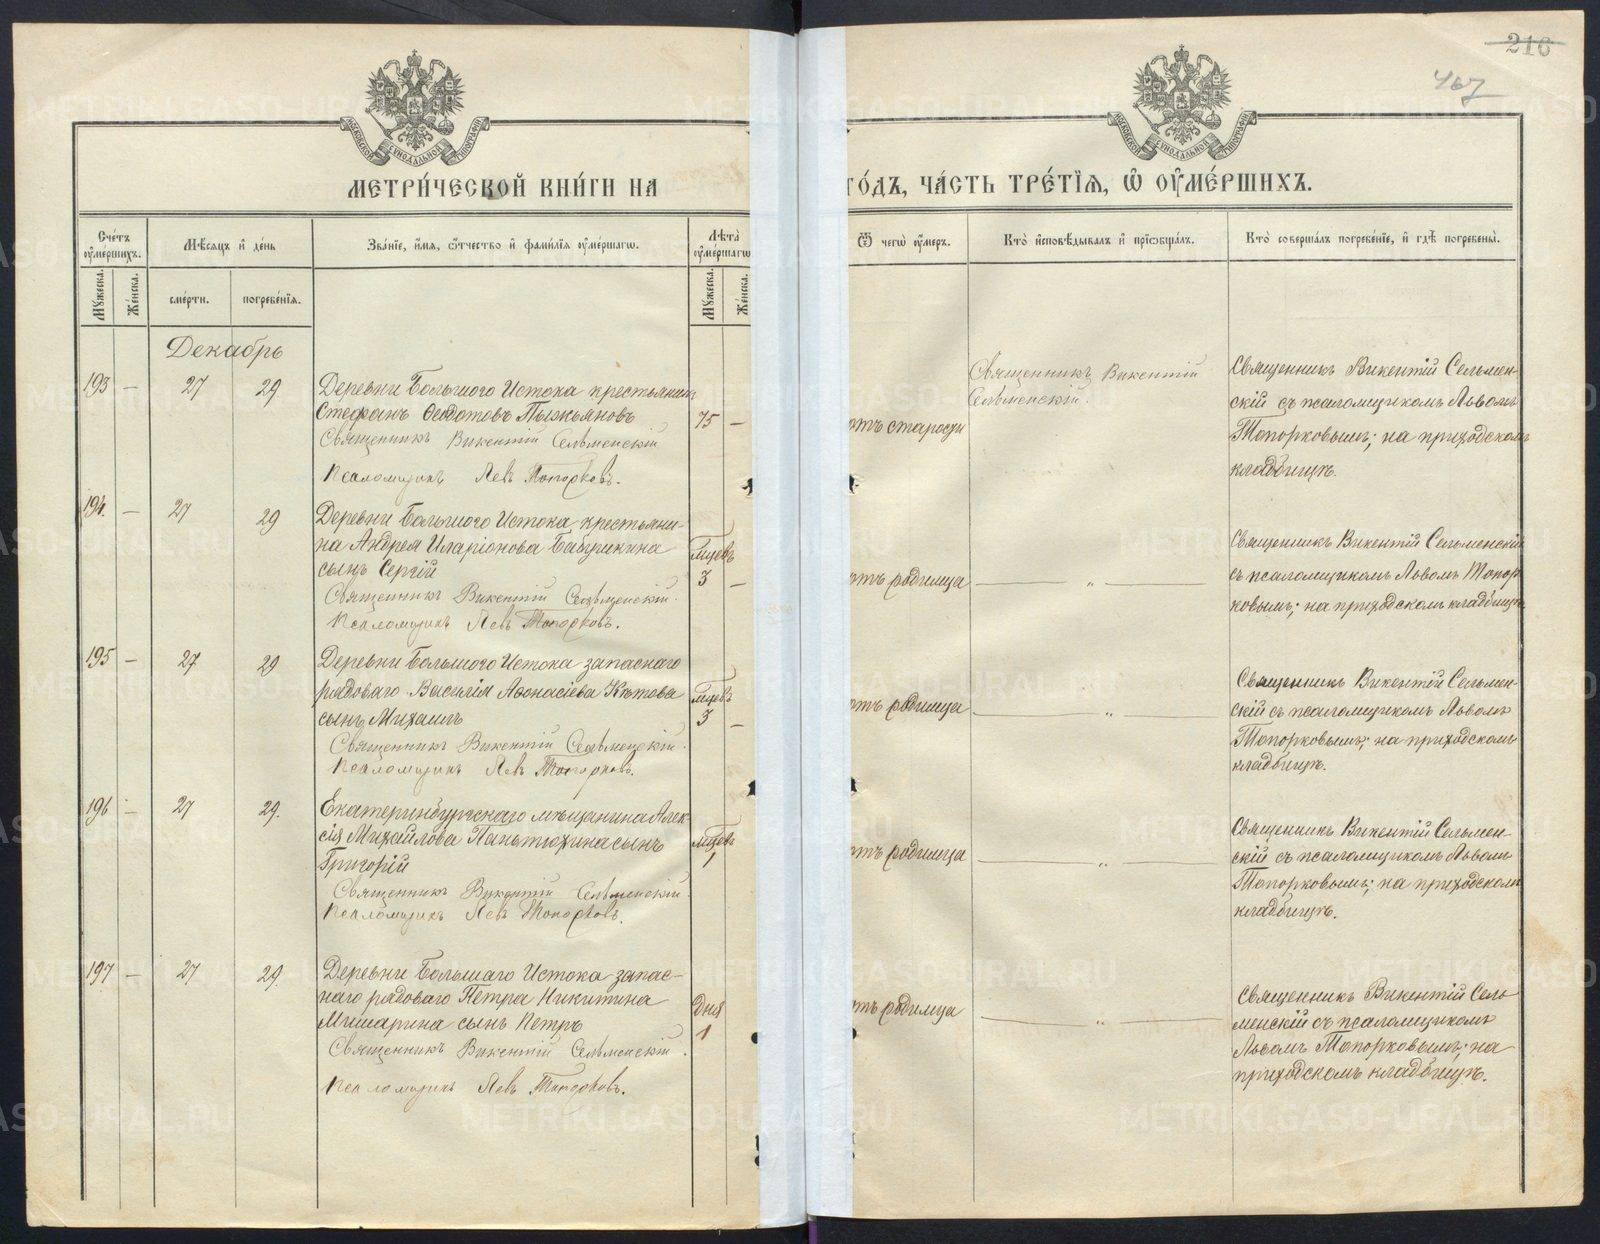 216
467
МЕТРИ́ЧЕСКОЙ КНИ́ГИ НА
ГО́ДЪ, ЧА́СТЬ ТРЕ́ТІЯ, Ѿ ОУ҆МЕ́РШИХЪ.
Сче́тъ оу҆ме́ршихъ.
Мѣ́сяцъ и҆ де́нь
Зва́ніе, и҆́мя, ѻ҆́тчество и҆ фами́лія оу҆ме́ршагѡ.
Лѣ́та оу҆ме́ршагѡ
Ѿ чегѡ̀ оу҆́меръ.
Кто̀ и҆сповѣ́дывалъ и҆ прїѡбща́лъ.
Кто̀ соверша́лъ погребе́ніе, и҆ гдѣ̀ погребены̀.
Му́жеска.
Же́нска.
сме́рти.
погребе́нія.
Му́жеска.
Же́нска.
Декабрь
193 — 27 29
Деревни Большого Истока крестьянин
Стефанъ Ѳедотовъ Пыжьяновъ
Священникъ Викентій Сельменскій
Псаломщикъ Левъ Топорковъ.
75 —
отъ старости
Священникъ Викентій
Сельменскій.
Священникъ Викентій Сельмен-
скій съ псаломщикомъ Львомъ
Топорковымъ; на приходскомъ
кладбищѣ.
194. — 27 29
Деревни Большого Истока крестьяни-
на Андрея Иларіонова Бабушкина
сынъ Сергій
Священникъ Викентій Сельменскій.
Псаломщикъ Левъ Топорковъ.
мцевъ
3 —
отъ родимца
— „ —
Священникъ Викентій Сельменскій
съ псаломщикомъ Львомъ Топор
ковымъ; на приходскомъ кладбищѣ
195 — 27 29
Деревни Большого Истока запаснаго
рядоваго Василія Аѳонасіева Кѣтова
сынъ Михаилъ
Священникъ Викентій Сельменскій.
Псаломщикъ Левъ Топорковъ.
мцевъ
3 —
отъ родимца
— „ —
Священникъ Викентій Сельмен-
скій съ псаломщикомъ Львомъ
Топорковымъ; на приходскомъ
кладбищѣ.
196 — 27 29.
Екатеринбургскаго мѣщанина Алек-
сія Михайлова Паньтюхина сынъ
Григорій
Священникъ Викентій Сельменскій.
Псаломщикъ Левъ Топорковъ.
мцевъ
1
отъ родимца
— „ —
Священникъ Викентій Сельмен-
скій съ псаломщикомъ Львомъ
Топорковымъ; на приходскомъ
кладбищѣ.
197 — 27 29.
Деревни Большаго Истока запас-
наго рядоваго Петра Никитина
Мишарина сынъ Петръ
Священникъ Викентій Сельменскій.
Псаломщикъ Левъ Топорковъ.
Дня
1
отъ родимца
— „ —
Священникъ Викентій Сель
менскій съ псаломщикомъ
Львомъ Топорковымъ; на
приходскомъ кладбищѣ.